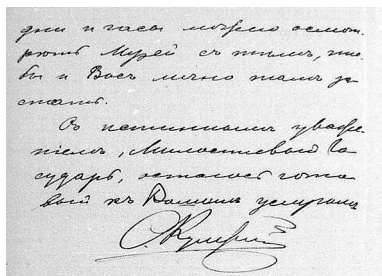 дни и часы можно осмот
рѣть Музей съ тѣмъ, что
бы и Васъ лично тамъ за
стать.
Съ истиннымъ уваже
ніемъ, Милостивый Го
сударь, остаюсь гото
вый къ Вашимъ услугамъ